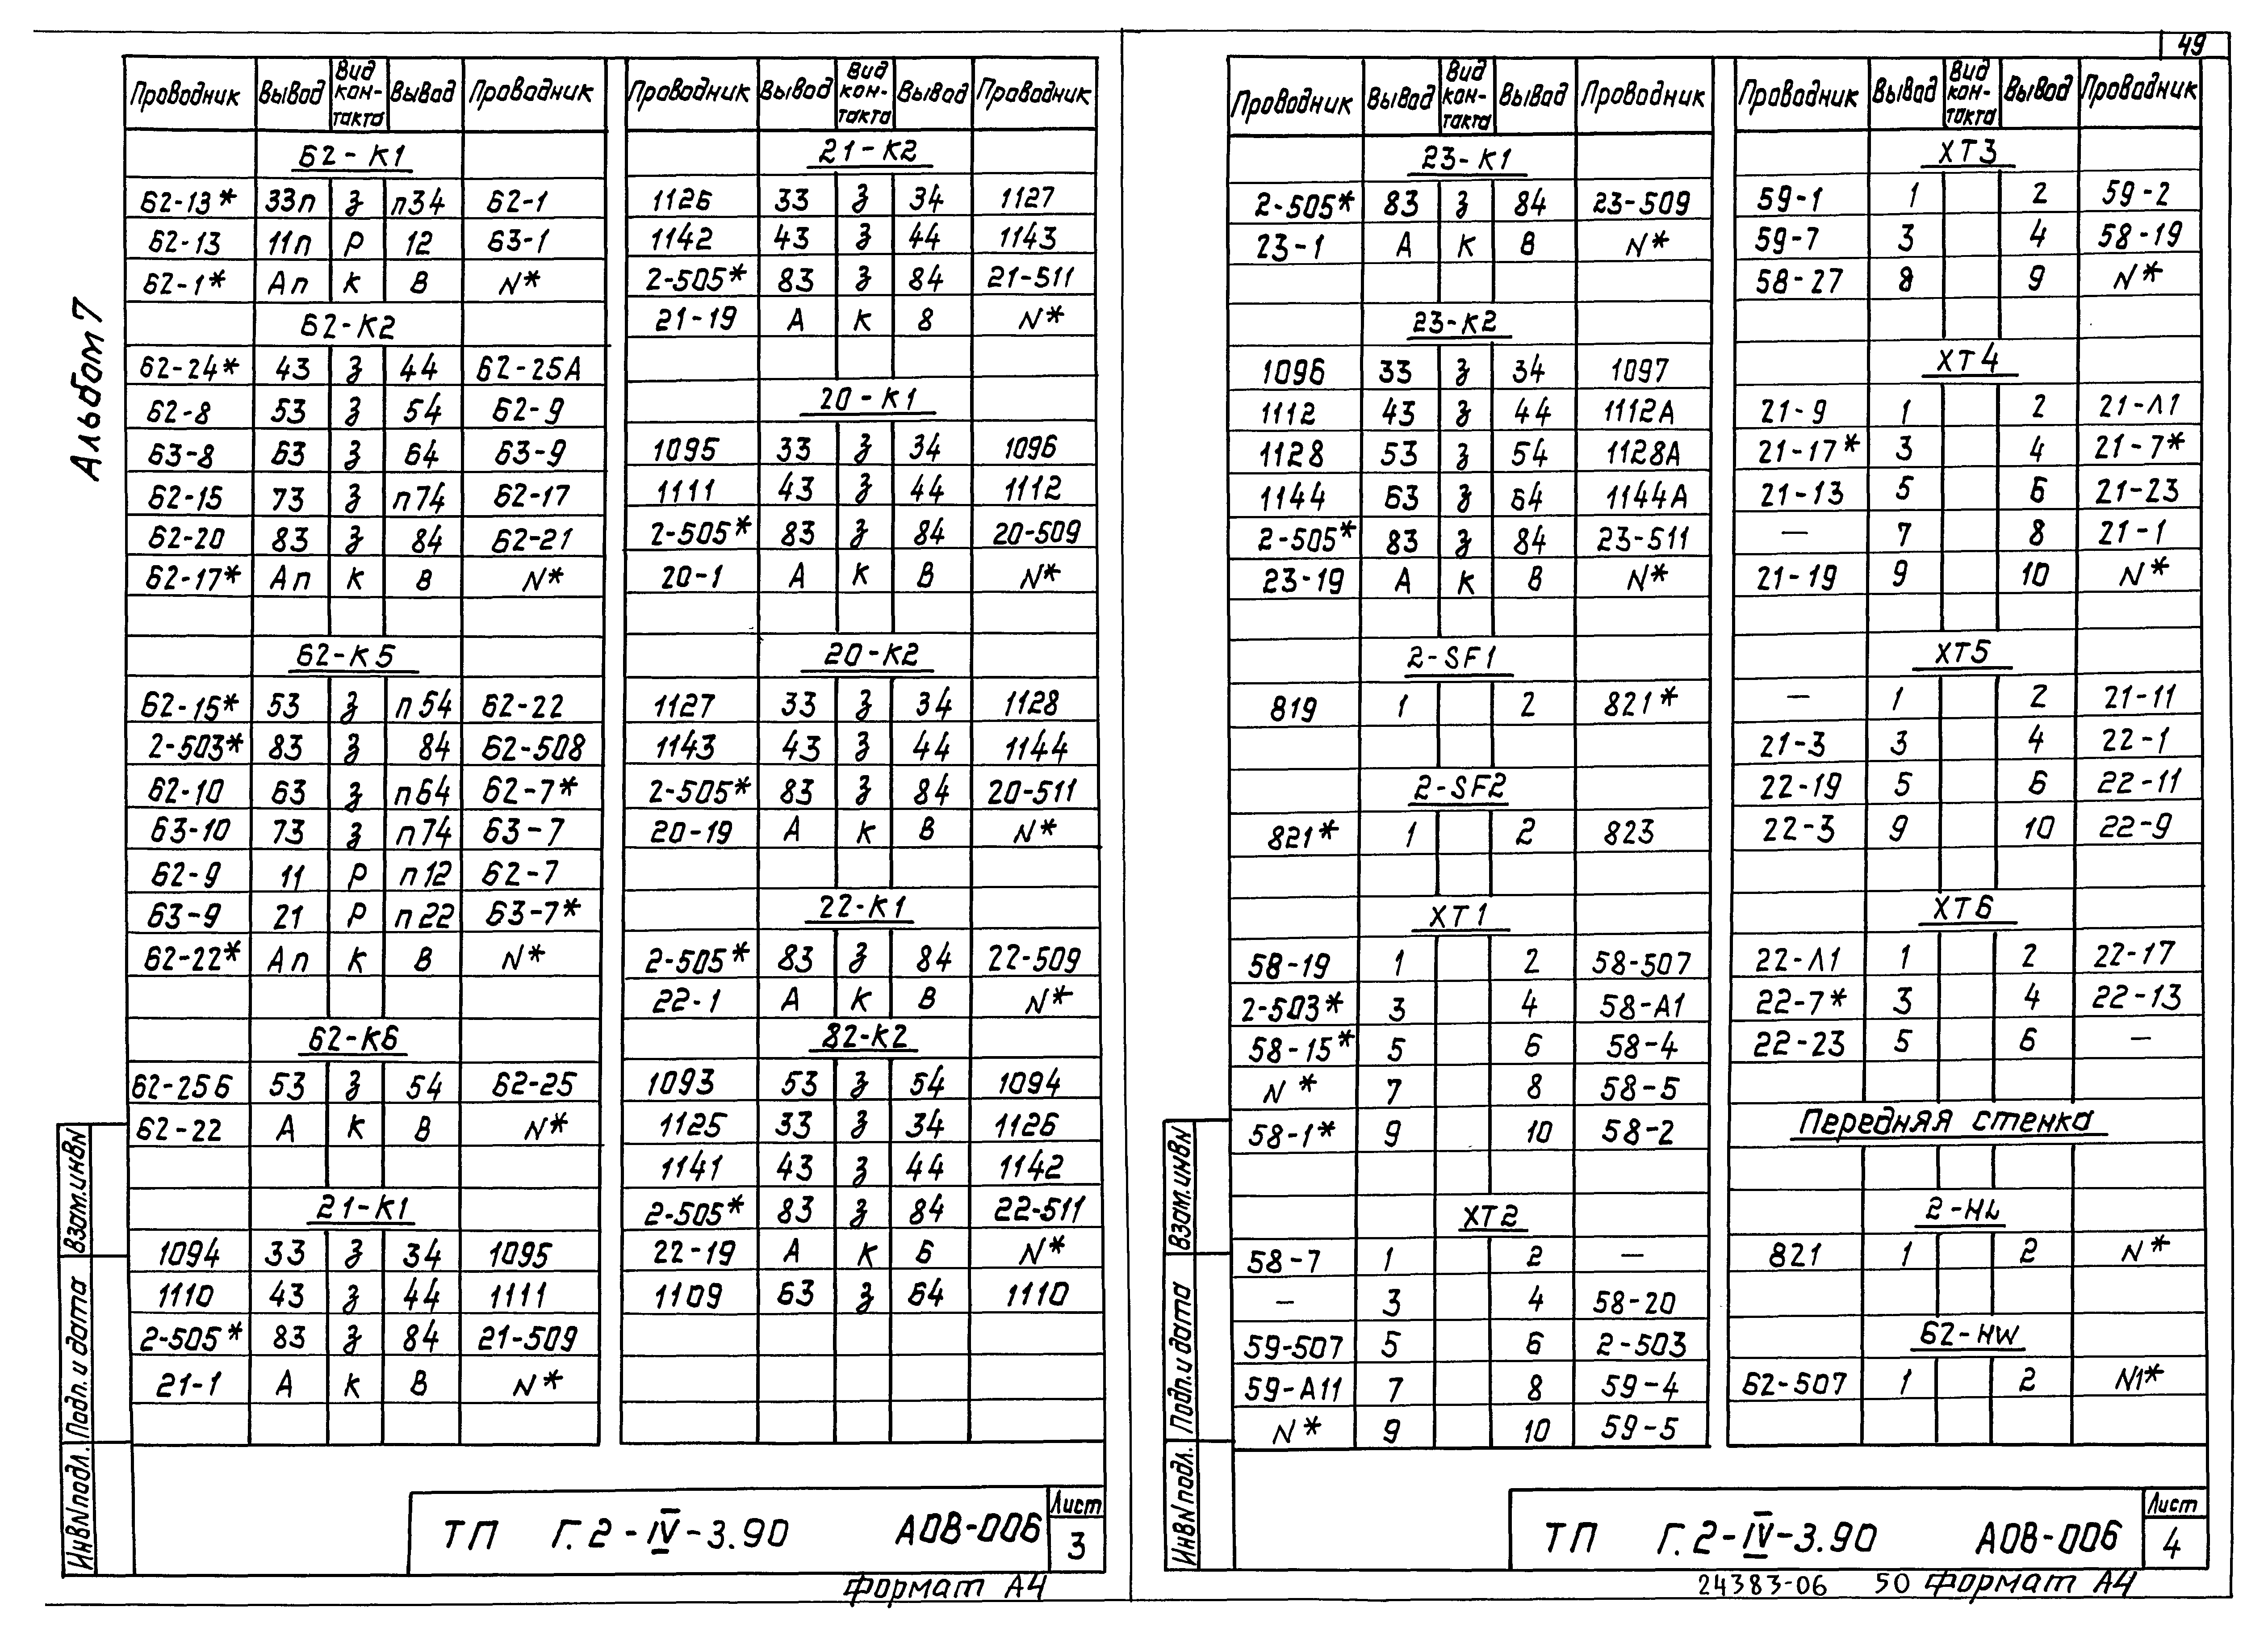 49
Альбом 7
Проводник Вывод Вид кон-такта Вывод Проводник
62-К1
62-13* 33п З п34 62-1
62-13 11п Р 12 63-1
62-1* Ап К В N*
62-К2
62-24* 43 З 44 62-25А
62-8 53 З 54 62-9
63-8 63 З 64 63-9
62-15 73 З п74 62-17
62-20 83 З 84 62-21
62-17* Ап К В N*
62-К5
62-15* 53 З п54 62-22
2-503* 83 З 84 62-508
62-10 63 З п64 62-7*
63-10 73 З п74 63-7
62-9 11 Р п12 62-7
63-9 21 Р п22 63-7*
62-22* Ап К В N*
62-К6
62-25Б 53 З 54 62-25
62-22 А К В N*
21-К1
1094 33 З 34 1095
1110 43 З 44 1111
2-505* 83 З 84 21-509
21-1 А К В N*
Проводник Вывод Вид кон-такта Вывод Проводник
21-К2
1126 33 З 34 1127
1142 43 З 44 1143
2-505* 83 З 84 21-511
21-19 А К 8 N*
20-К1
1095 33 З 34 1096
1111 43 З 44 1112
2-505* 83 З 84 20-509
20-1 А К В N*
20-К2
1127 33 З 34 1128
1143 43 З 44 1144
2-505* 83 З 84 20-511
20-19 А К В N*
22-К1
2-505* 83 З 84 22-509
22-1 А К В N*
82-К2
1093 53 З 54 1094
1125 33 З 34 1126
1141 43 З 44 1142
2-505* 83 З 84 22-511
22-19 А К Б N*
1109 63 З 64 1110
Взам.инвN
Подп. и дата
ИнвNподл.
ТП Г.2-IV-3.90 АОВ-006
Лист
3
Формат А4
Проводник Вывод Вид кон-такта Вывод Проводник
23-К1
2-505* 83 З 84 23-509
23-1 А К В N*
23-К2
1096 33 З 34 1097
1112 43 З 44 1112А
1128 53 З 54 1128А
1144 63 З 64 1144А
2-505* 83 З 84 23-511
23-19 А К В N*
2-SF1
819 1 2 821*
2-SF2
821* 1 2 823
ХТ1
58-19 1 2 58-507
2-503* 3 4 58-А1
58-15* 5 6 58-4
N* 7 8 58-5
58-1* 9 10 58-2
ХТ2
58-7 1 2 —
— 3 4 58-20
59-507 5 6 2-503
59-А11 7 8 59-4
N* 9 10 59-5
Проводник Вывод Вид кон-такта Вывод Проводник
ХТ3
59-1 1 2 59-2
59-7 3 4 58-19
58-27 8 9 N*
ХТ4
21-9 1 2 21-Л1
21-17* 3 4 21-7*
21-13 5 6 21-23
— 7 8 21-1
21-19 9 10 N*
ХТ5
— 1 2 21-11
21-3 3 4 22-1
22-19 5 6 22-11
22-3 9 10 22-9
ХТ6
22-Л1 1 2 22-17
22-7* 3 4 22-13
22-23 5 6 —
Передняя стенка
2-HL
821 1 2 N*
62-HW
62-507 1 2 N1*
Взам.инвN
Подп. и дата
ИнвNподл.
ТП Г.2-IV-3.90 АОВ-006
Лист
4
24383-06 50 Формат А4